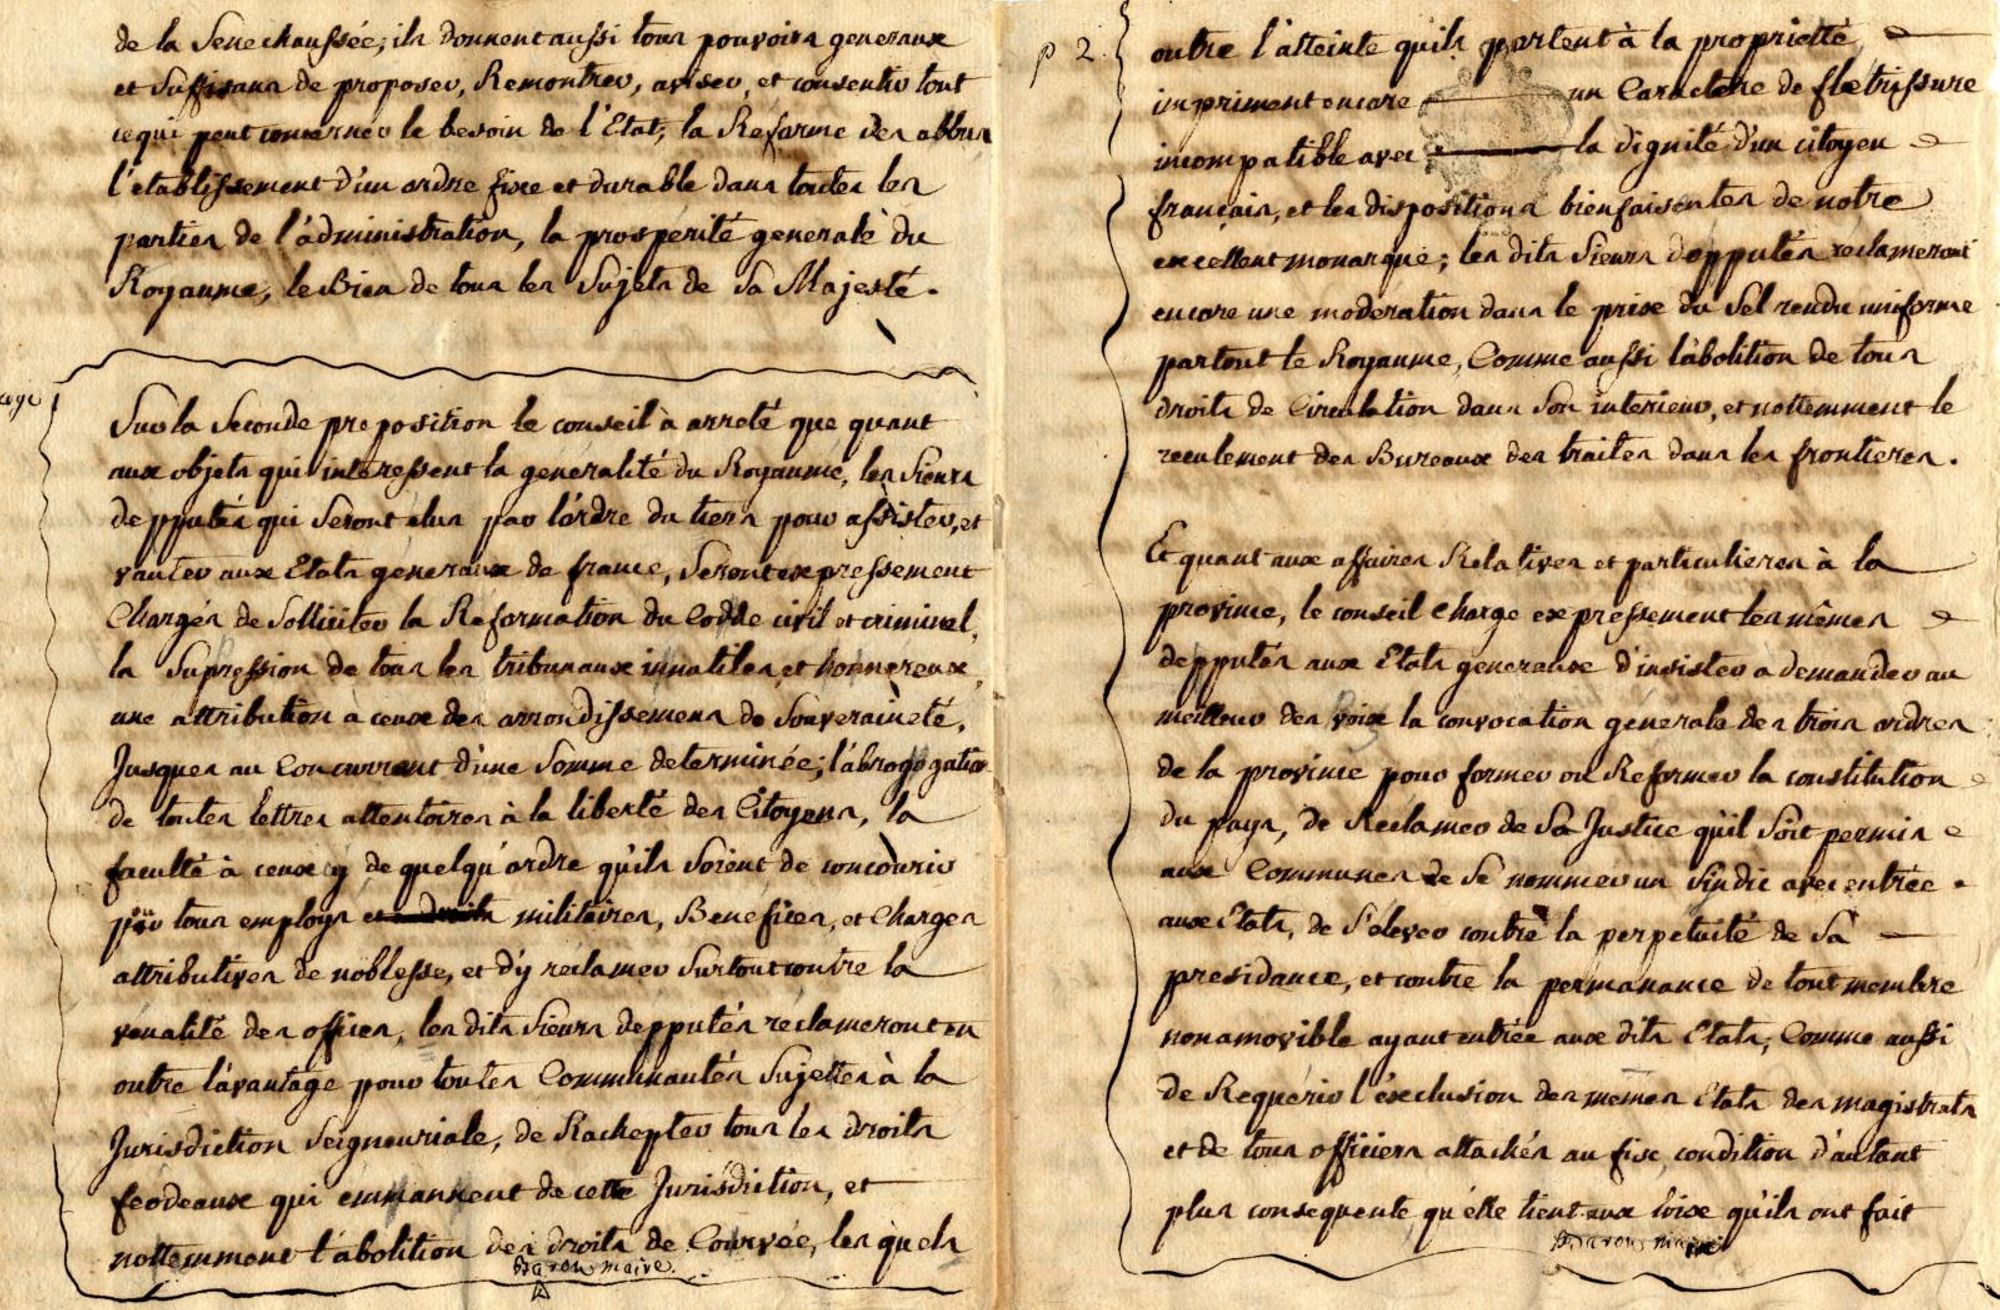 de la Senechaussée; ils donnent aussi tous pouvoirs generaux
et suffisans de proposer, Remontrer, aviser, et consentir tout
ce qui peut concerner le besoin de l'Etat, la Reforme des abbus
l'etablissement d'un ordre fixe et durable dans toutes les
parties de l'administration, la prosperité generale du
Royaume, le Bien de tous les Sujets de Sa Majesté.
Sur la Seconde proposition le conseil à arreté que quant
aux objets qui interessent la generalité du Royaume, les Sieurs
depputés qui Seront elus par l'ordre du tiers pour assister, et
vauter aux Etats generaux de france, Seront expressement
Chargés de Solliciter la Reformation du Codde civil et criminel,
la Supression de tous les tribunaux innutiles, et honnereux,
une attribution a ceux des arrondissemens de Souveraineté,
Jusques au Concurrant d'une Somme determinée; l'abrogogation
de toutes lettres attentoires à la liberté des Citoyens, la
faculté à ceux cy de quelqu'ordre qu'ils Soient de concourir
pour tous employs militaires, Benefices, et Charges
attributives de noblesse, et d'y reclamer Surtout contre la
venalité des offices, les dits Sieurs depputés reclameront en
outre l'avantage pour toutes Communautés Sujettes à la
Jurisdiction Seigneuriale, de Rachepter tous les droits
feodeaux qui emmannent de cette Jurisdiction, et
nottemment l'abolition des droits de Courvée, les quels
Baron maire.
p 2.
outre l'atteinte quils portent à la proprietté
impriment encore un Caractere de fletrissure
incompatible avec la dignité d'un citoyen
français, et les dispositions bienfaisentes de notre
excellent monarque; les dits Sieurs depputés reclameront
encore une moderation dans le prix du Sel rendu uniforme
partout le Royaume, Comme aussi l'abolition de tous
droits de Circulation dans Son interieur, et nottemment le
reculement des Bureaux des traites dans les frontieres.
Et quant aux affaires Relatives et particulieres à la
province, le conseil charge expressement les mêmes
depputés aux Etats generaux d'insister a demander au
meilleur des roix la convocation generale des trois ordres
de la province pour former ou Reformer la constitution
du pays, de Reclamer de Sa Justice qu'il Soit permis
aux Communes de Se nommer un Sindic avec entrée
aux Etats, de S'elever contre la perpetuité de Sa
presidance, et contre la permanance de tout membre
non amovible ayant entrée aux dits Etats, Comme aussi
de Requerir l'exclusion des memes Etats des magistrats
et de tous officiers attachés au fisc, condition d'autant
plus consequente qu'elle tient aux loix qu'ils ont fait
Baron maire